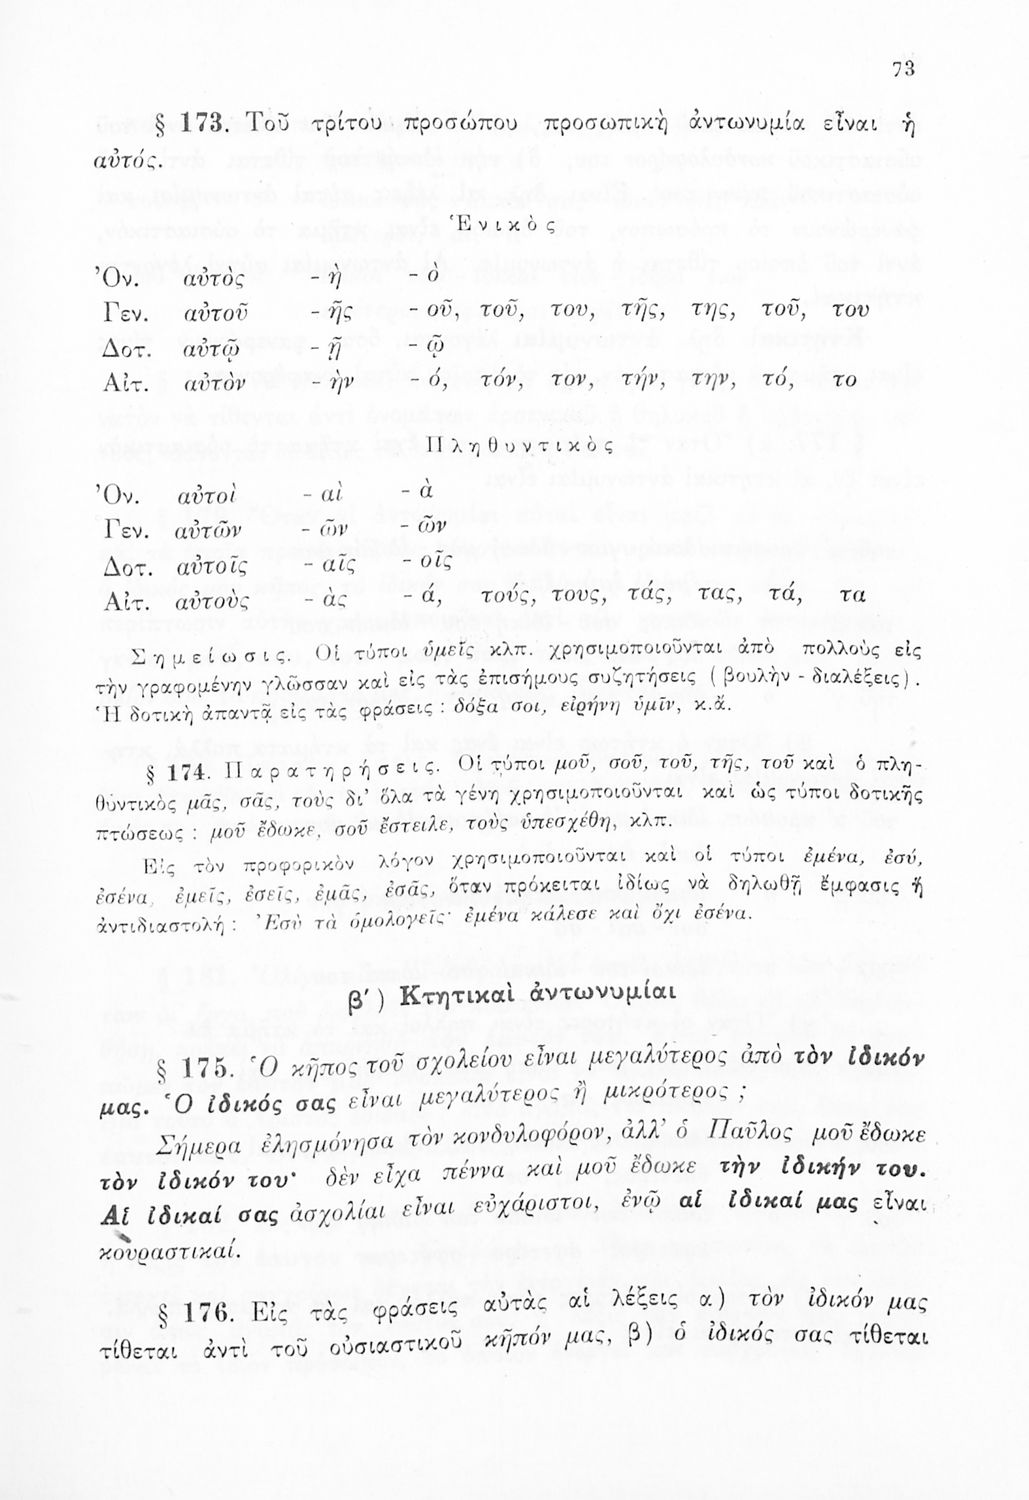 73
§ 173. Τοῦ τρίτου προσώπου προσωπικὴ ἀντωνυμία εἶναι ἡ
αὐτός.
Ἑνικὸς
Ὀν. αὐτὸς - ὴ - ὸ
Γεν. αὐτοῦ - ῆς - οῦ, τοῦ, του, τῆς, της, τοῦ, του
Δοτ. αὐτῷ - ῇ - ῷ
Αἰτ. αὐτὸν - ὴν - ό, τόν, τον, τήν, την, τό, το
Πληθυντικὸς
Ὀν. αὐτοὶ - αὶ - ὰ
Γεν. αὐτῶν - ῶν - ῶν
Δοτ. αὐτοῖς - αῖς - οῖς
Αἰτ. αὐτοὺς - ὰς - ά, τούς, τους, τάς, τας, τά, τα
Σημείωσις. Οἱ τύποι ὑμεῖς κλπ. χρησιμοποιοῦνται ἀπὸ πολλοὺς εἰς
τὴν γραφομένην γλῶσσαν καὶ εἰς τὰς ἐπισήμους συζητήσεις (βουλὴν - διαλέξεις).
Ἡ δοτικὴ ἀπαντᾷ εἰς τὰς φράσεις : δόξα σοι, εἰρήνη ὑμῖν, κ.ἄ.
§ 174. Παρατηρήσεις. Οἱ τύποι μοῦ, σοῦ, τοῦ, τῆς, τοῦ καὶ ὁ πλη-
θυντικὸς μᾶς, σᾶς, τοὺς δι’ ὅλα τὰ γένη χρησιμοποιοῦνται καὶ ὡς τύποι δοτικῆς
πτώσεως : μοῦ ἔδωκε, σοῦ ἔστειλε, τοὺς ὑπεσχέθη, κλπ.
Εἰς τὸν προφορικὸν λόγον χρησιμοποιοῦνται καὶ οἱ τύποι ἐμένα, ἐσύ,
ἐσένα, ἐμεῖς, ἐσεῖς, ἐμᾶς, ἐσᾶς, ὅταν πρόκειται ἰδίως νὰ δηλωθῇ ἔμφασις ἢ
ἀντιδιαστολή : Ἐσὺ τὰ ὁμολογεῖς· ἐμένα κάλεσε καὶ ὄχι ἐσένα.
β΄) Κτητικαὶ ἀντωνυμίαι
§ 175. Ὁ κῆπος τοῦ σχολείου εἶναι μεγαλύτερος ἀπὸ τὸν ἰδικόν
μας. Ὁ ἰδικός σας εἶναι μεγαλύτερος ἢ μικρότερος ;
Σήμερα ἐλησμόνησα τὸν κονδυλοφόρον, ἀλλ’ ὁ Παῦλος μοῦ ἔδωκε
τὸν ἰδικόν του· δὲν εἶχα πέννα καὶ μοῦ ἔδωκε τὴν ἰδικήν του.
Αἱ ἰδικαί σας ἀσχολίαι εἶναι εὐχάριστοι, ἐνῷ αἱ ἰδικαί μας εἶναι
κουραστικαί.
§ 176. Εἰς τὰς φράσεις αὐτὰς αἱ λέξεις α) τὸν ἰδικόν μας
τίθεται ἀντὶ τοῦ οὐσιαστικοῦ κῆπόν μας, β) ὁ ἰδικός σας τίθεται